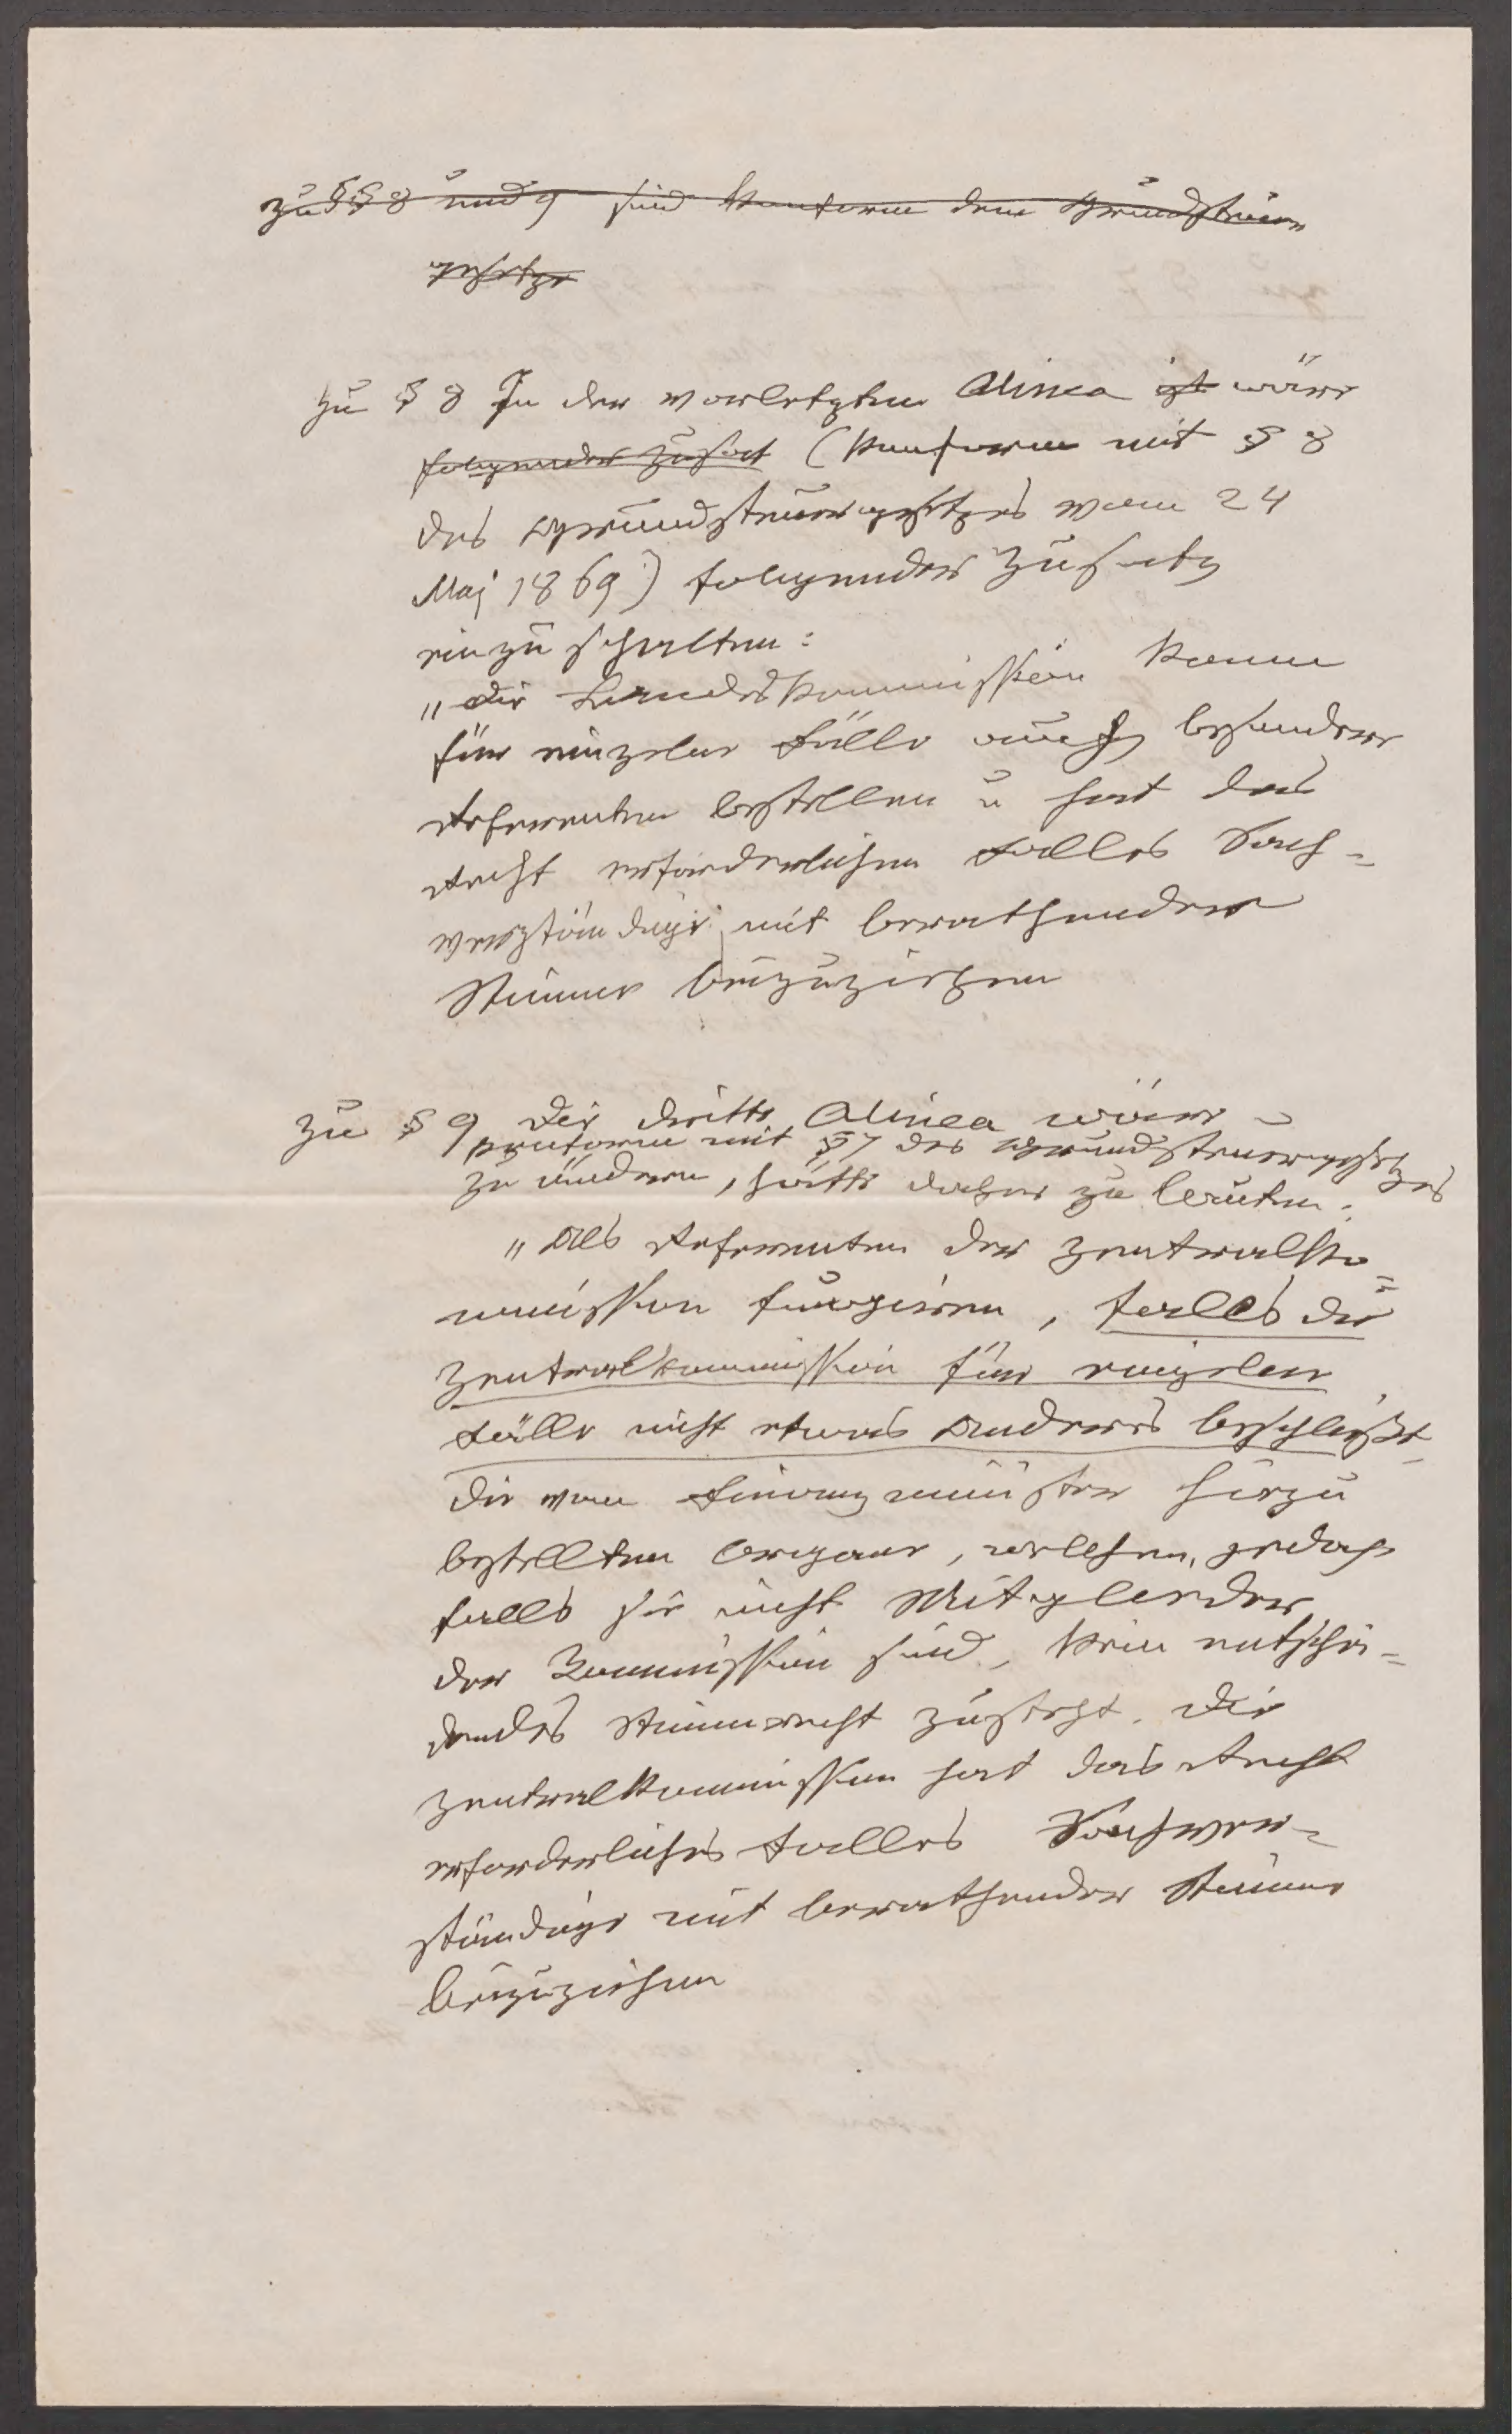 zu §§ 8 und 9 sind konform dem Grundsteuer
gesetze
zu § 8 In der vorletzten Alinea ist wäre
folgender Zusatz (konform mit § 8
des Grundsteuergesetzes vom 24
Maj 1869) folgender Zusatz
einzuschalten:
„die Landeskommission kann
für einzelne Fälle auch besondere
Referenten bestellen u hat das
Recht erforderlichen Falles Sach=
verständige mit berathender
Stimme beizuziehen
zu § 9 Die dritte Alinea wäre
konform mit § 7 des Grundsteuergesetzes
zu ändern, hätte daher zu lauten:
„Als Referenten der Zentralko=
mmission fungieren, falls die
Zentralkommission für einzelne
Fälle nicht etwas Anderes beschließt,
die vom Finanzminister hiezu
bestellten Organe, welchen, jedoch
falls sie nicht Mitglieder
der Kommission sind, kein entschei=
dendes Stimmrecht zusteht. Die
Zentralkommission hat das Recht
erforderliches Falles Sachver=
ständige mit berathender Stimme
beizuziehen